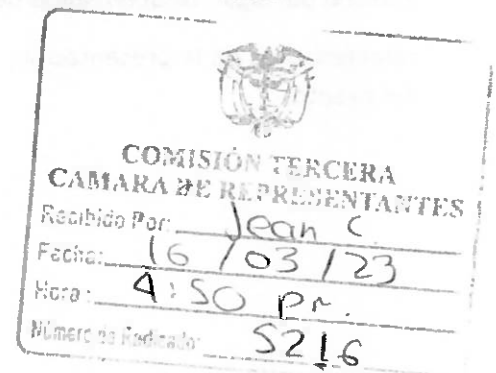 COMISIÓN TERCERA
CAMARA DE REPRESENTANTES
Recibido Por: Jean C.
Fecha: 16 / 03 / 23
Hora: 4:50 pm.
Número de Radicado: 5216